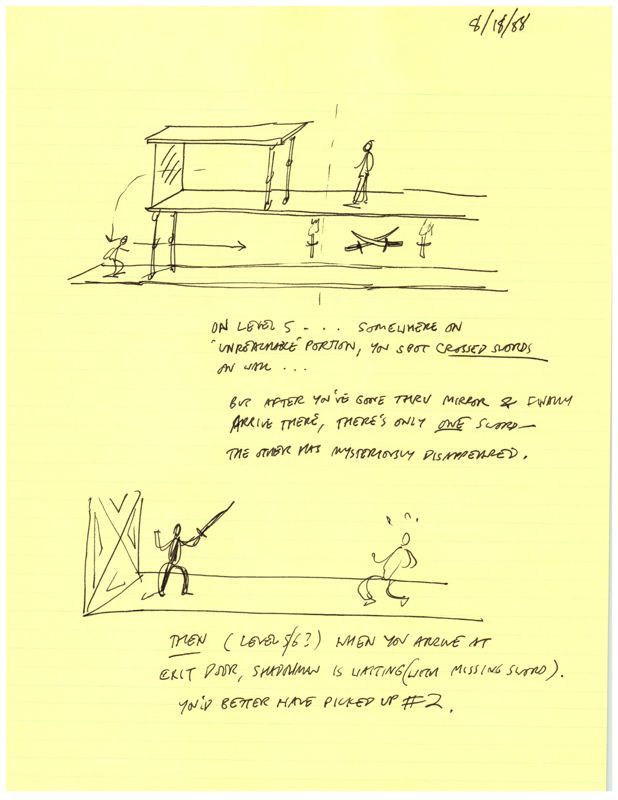 8/18/88
ON LEVEL 5 - . . . SOMEWHERE ON
"UNREACHABLE" PORTION, YOU SPOT CROSSED SWORDS
ON WALL . . .
BUT AFTER YOU'VE GONE THRU MIRROR & FINALLY
ARRIVE THERE, THERE'S ONLY ONE SWORD—
THE OTHER HAS MYSTERIOUSLY DISAPPEARED.
THEN (LEVEL 5/6?) WHEN YOU ARRIVE AT
EXIT DOOR, SHADOWMAN IS WAITING (WITH MISSING SWORD).
YOU'D BETTER HAVE PICKED UP #2.